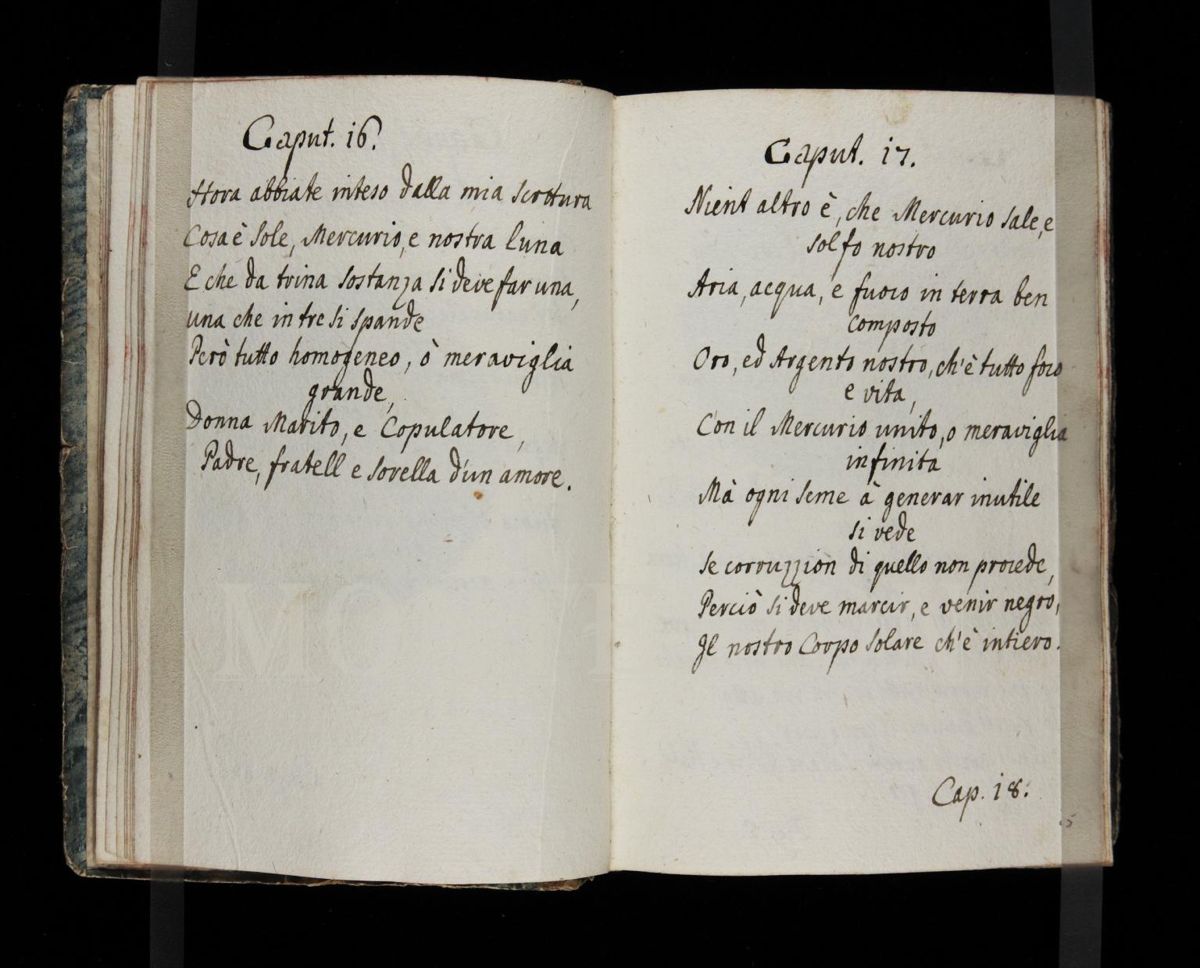 Caput. 16.
Hora abbiate inteso dalla mia scrittura
Cosa è Sole, Mercurio, e nostra Luna
E che da trina sostanza si deve far una,
una che in tre si spande
Però tutto homogeneo, ò meraviglia
grande,
Donna Marito, e Copulatore,
Padre, fratell e sorella d'un amore.
Caput. 17.
Nient altro è, che Mercurio sale, e
solfo nostro
Aria, acqua, e fuoco in terra ben
composto
Oro, ed Argento nostro, ch'è tutto foco
e vita,
Con il Mercurio unito, o meraviglia
infinita
Mà ogni seme à generar inutile
si vede
Se corruzzion di quello non procede,
Perciò si deve marcir, e venir negro,
Il nostro Corpo solare ch'è intiero.
Cap. 18.